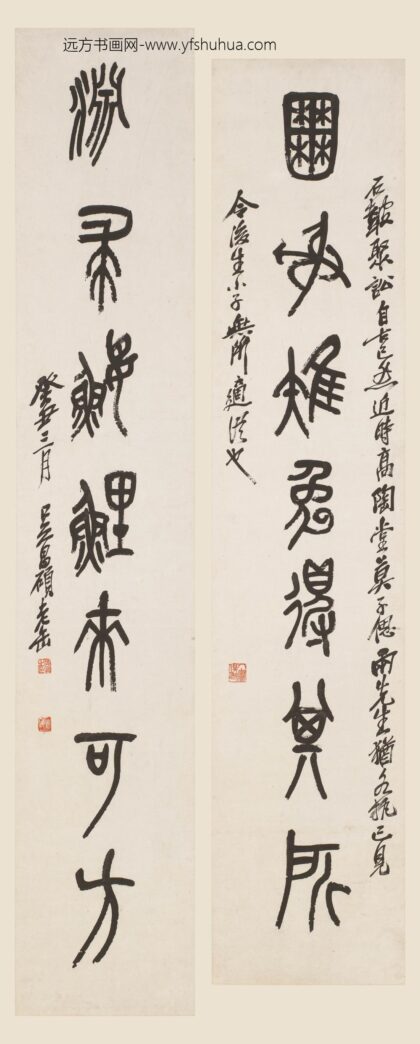 远方书画网-www.yfshuhua.com
囿射雉兔得其所
石鼓聚訟自古已然近時高陶堂莫子偲兩先生猶各執己見
令後生小子無所適從也
淵鰋鯉來可方
癸丑三月 吳昌碩老缶